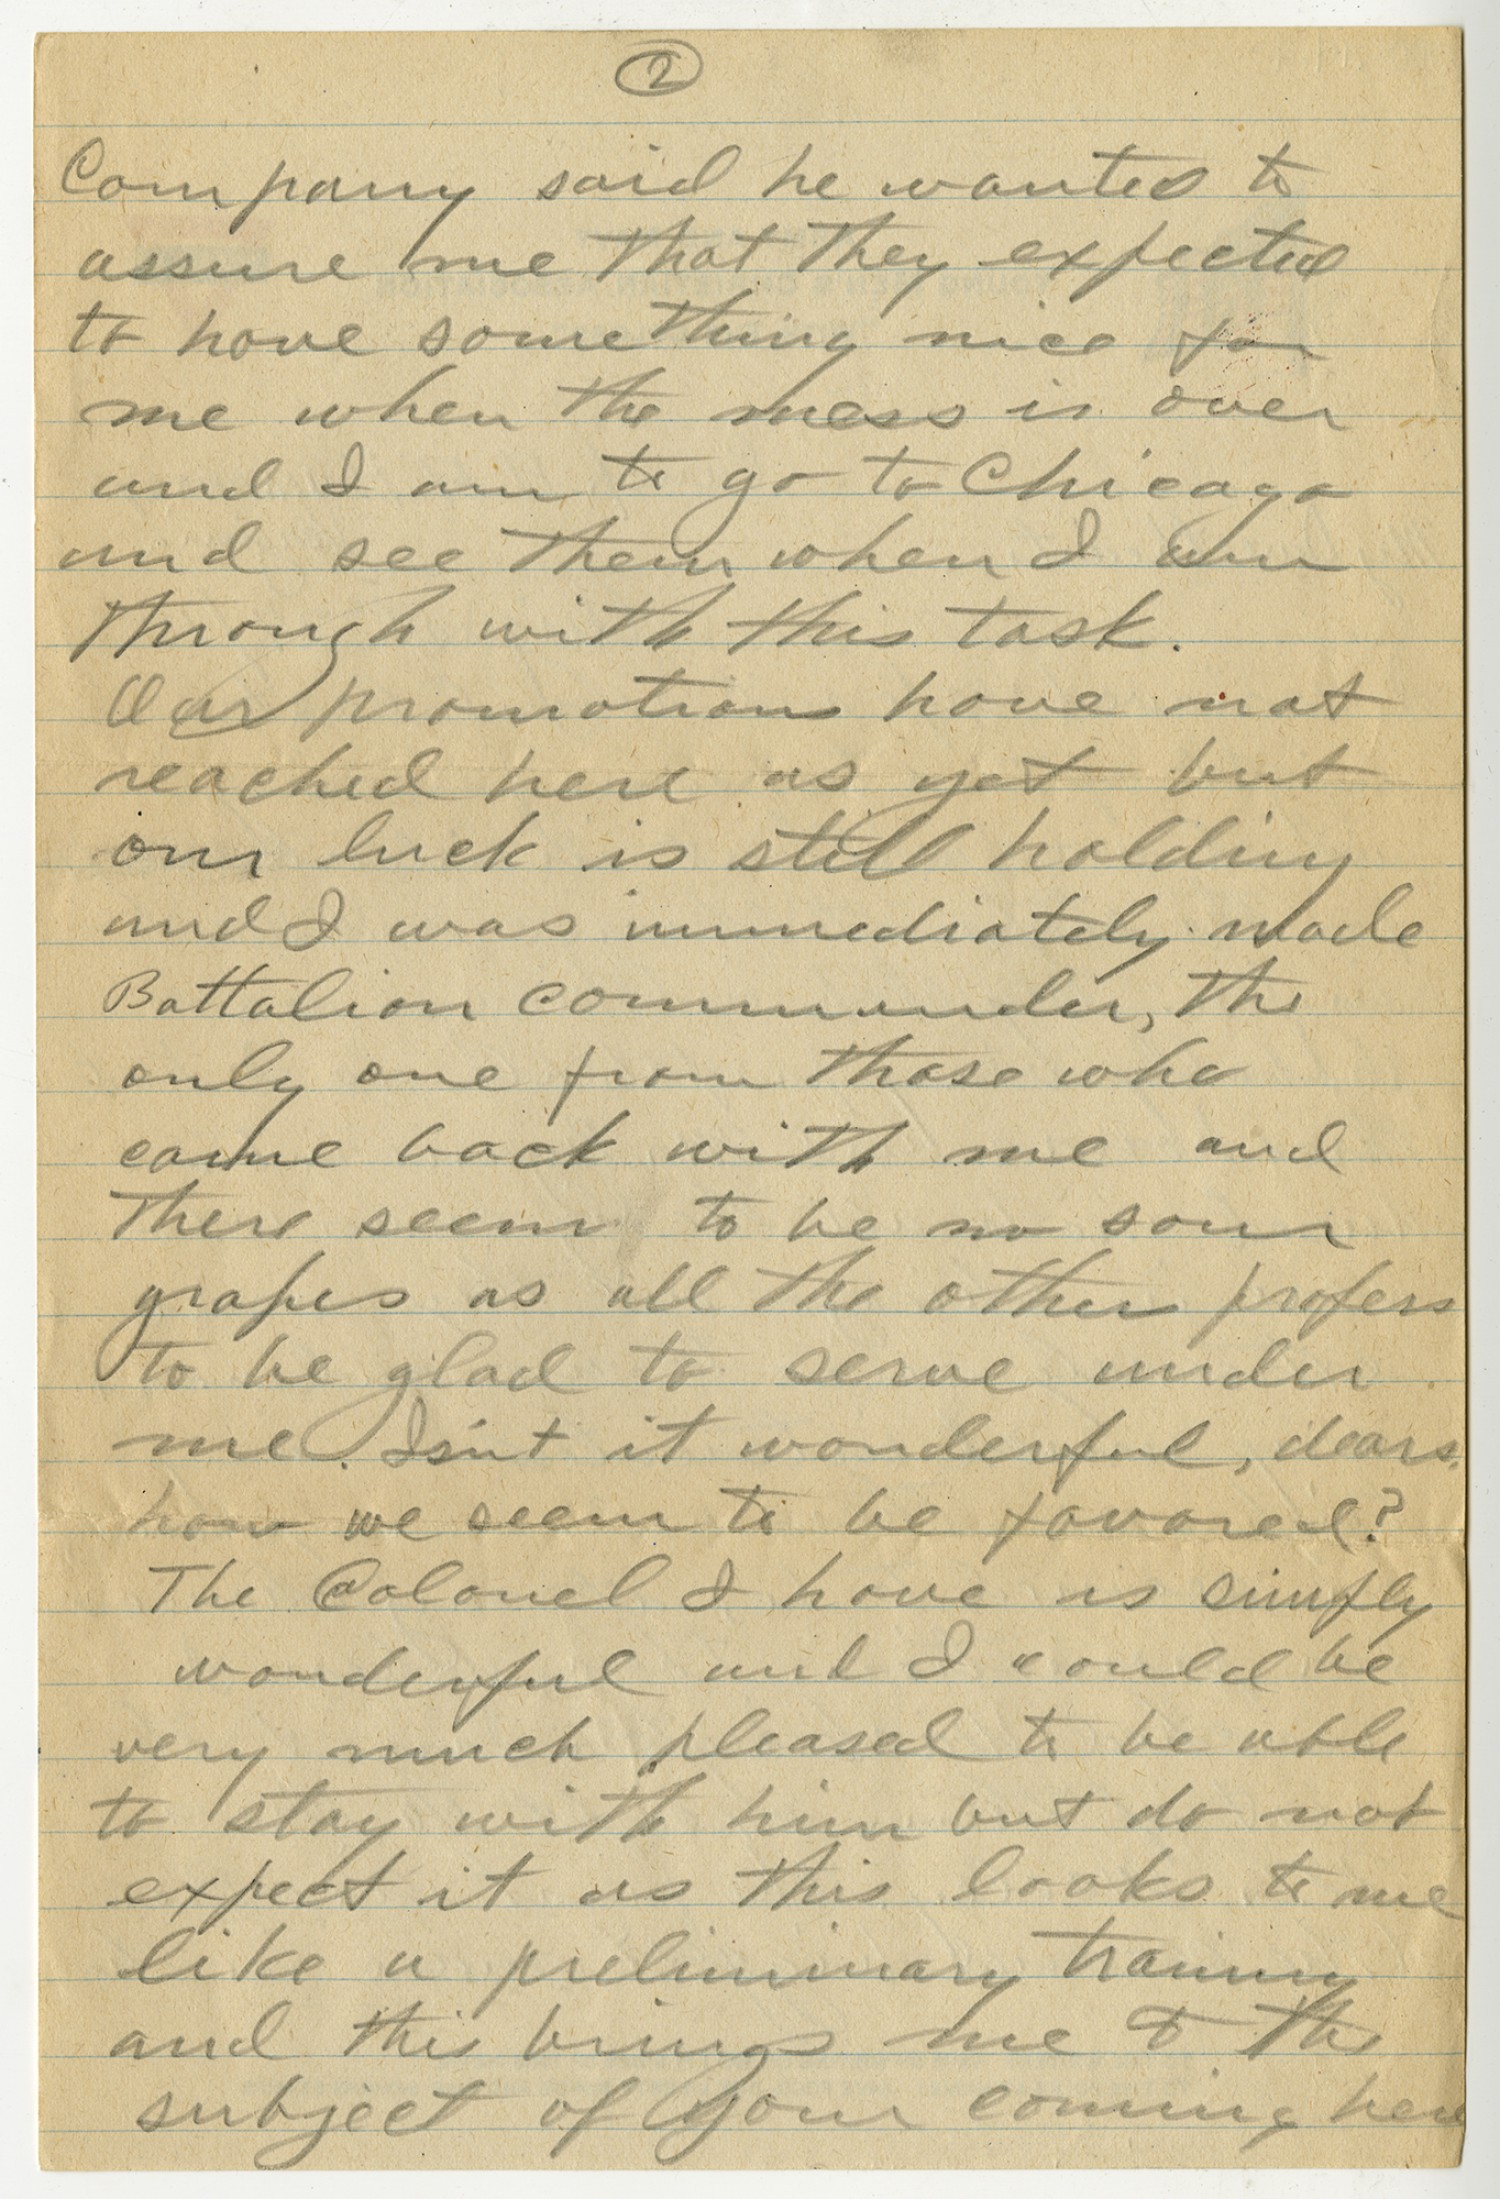 2
Company said he wanted to
assure me that they expected
to have something nice for
me when the mess is over
and I am to go to Chicago
and see them when I am
through with this task.
Our promotions have not
reached here as yet but
our luck is still holding
and I was immediately made
Battalion commander, the
only one from those who
came back with me and
there seems to be no sour
grapes as all the others profess
to be glad to serve under
me. Isn't it wonderful, dears,
how we seem to be favored?
The Colonel I have is simply
wonderful and I would be
very much pleased to be able
to stay with him but do not
expect it as this looks to me
like a preliminary training
and this brings me to the
subject of your coming here